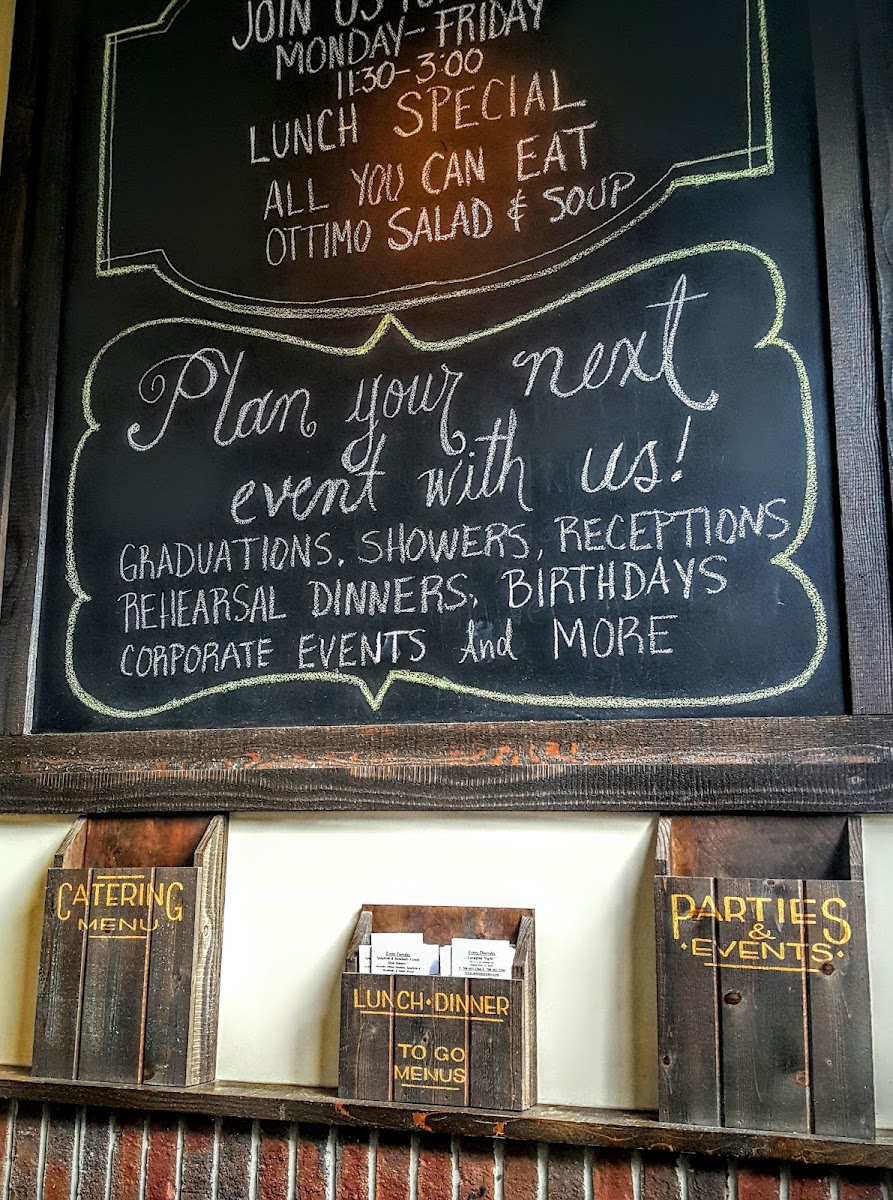 JOIN US
MONDAY-FRIDAY
11:30-3:00
LUNCH SPECIAL
ALL YOU CAN EAT
OTTIMO SALAD & SOUP
Plan your next
event with us!
GRADUATIONS, SHOWERS, RECEPTIONS
REHEARSAL DINNERS, BIRTHDAYS
CORPORATE EVENTS And MORE
CATERING
MENU
Every Tuesday
Every Thursday
Lasagna Night!
LUNCH·DINNER
TO GO
MENUS
PARTIES
&
·EVENTS·